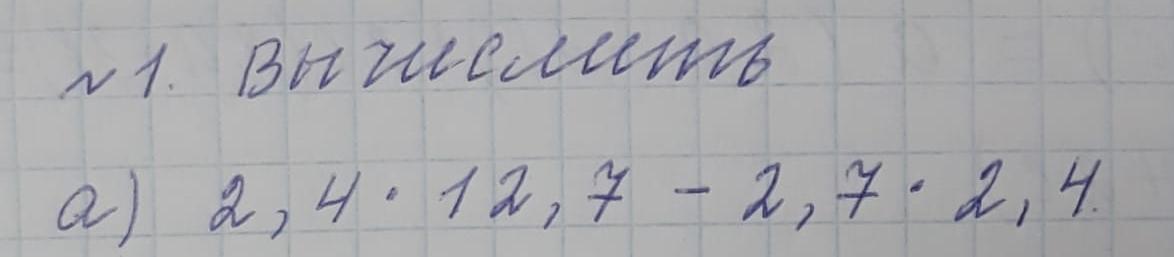 №1. Вычислить
а) 2,4 · 12,7 - 2,7 · 2,4.